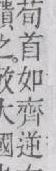 荀首如齊逆
饋之敬大國